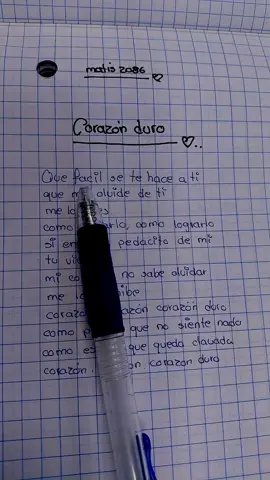 matis 2086
Corazón duro
Que facil se te hace a ti
que me olvide de ti
me lo
como lograrlo, como lograrlo
si en pedacito de mi
tu
mi no sabe olvidar
me
corazón corazón duro
como que no siente nada
como que queda clavada
corazón corazon duro